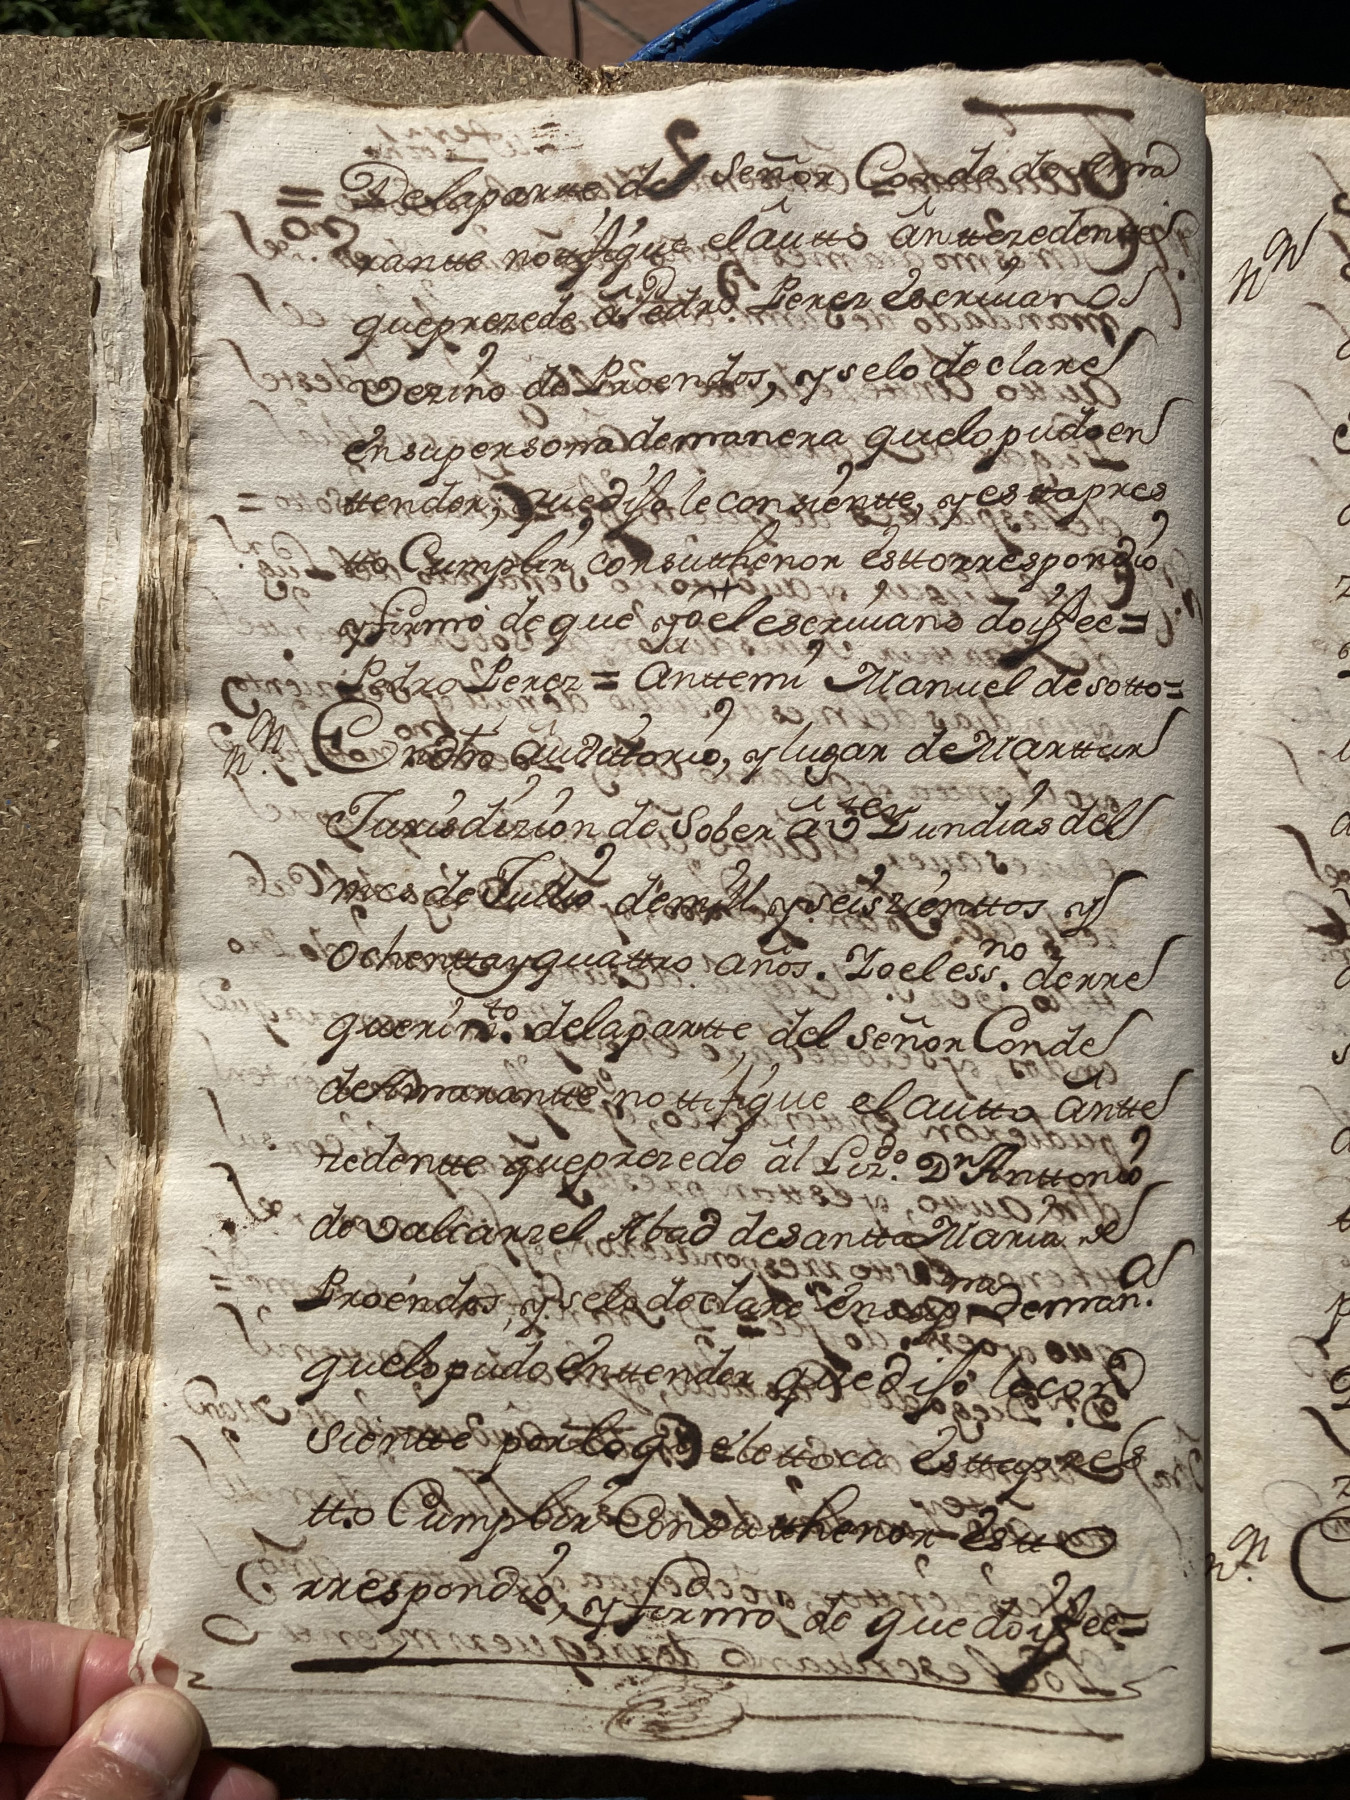 = Delaparte del señor Conde de Ama
rantte nottifique el autto anttezedentte
queprezede â Pedro Perez escriuano
Vezino de Proendos, y selo declare
ên supersona demanera quelo pudo en
ttender; que dijo le consientte, y esttapres
tto Cumplir consuthenor êsttorrespondio
y firmó de que yo el escriuano doi ffee =
Pedro Perez = Anttemi Manuel de sotto =
nn. En dho auditorio, y lugar de Marttin
Jurisdizion de Sober â Veintte y un dias del
mes de Jullio demill y seiszienttos y
ochenttayquattro años. Yo el ess.no derre
querim.to delapartte del señor Conde
de Amarantte nottifique el autto antte
zedentte queprezede âl Liz.do Dn Anttonio
de valcarzel Abad de santta Maria de
Proendos, y selo declare ensup.na deman.a
quelo pudo ênttender que dijo lecon
sientte por lo que lettoca êsttapres
tto Cumplir Consuthenor êstto
rrespondio, y firmo de que doi ffee =
nn
nn.